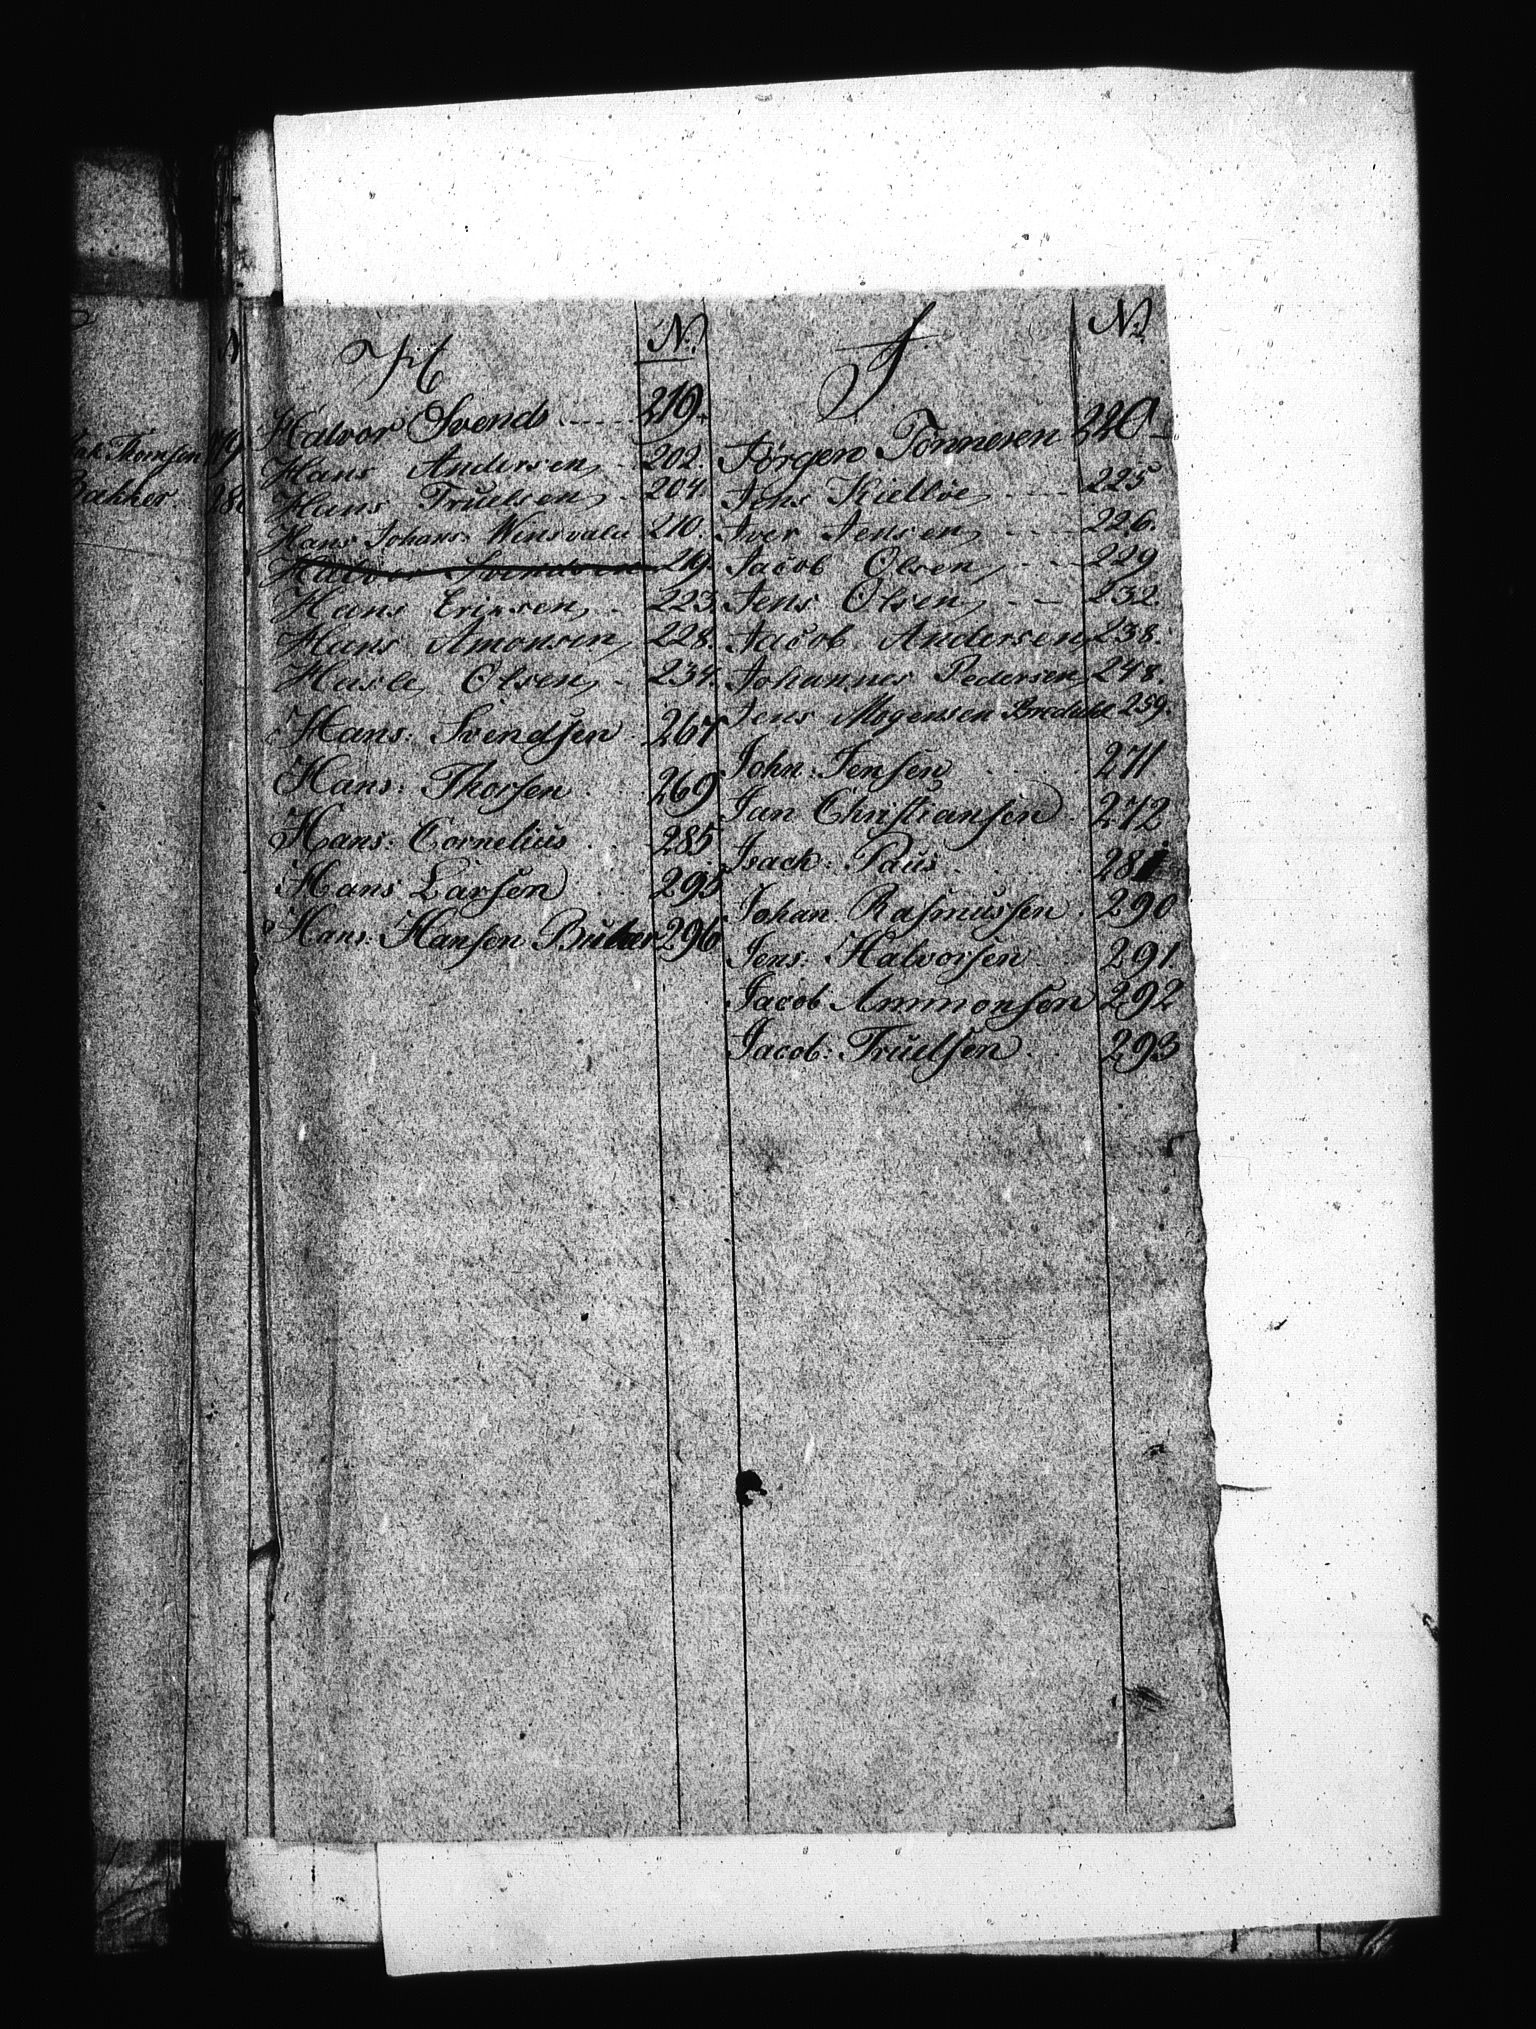 N
Thomsen 179
Bakker. 28
H N.
Halvor Svends 219.
Hans Andersen 202.
Hans Truelsen 204.
Hans Johans: 210.
Halvor Svendsen 219
Hans Ericsen 223
Hans Amonsen 228.
Olsen 234.
Hans: Svendsen 267
Hans: Thorsen 269
Hans: Cornelius 285
Hans Larsen 295
Hans: Hansen 296
J No.
Jørgen Tønnesen 220
Jens Kielloe 225
Iver Jensen 226.
Jacob Olsen 229
Jens Olsen 232.
Jacob Andersen 238.
Johannes Pedersen 248.
Jens Mogensen 259.
John: Jensen 271
Jan Christiansen 272
Isach: Paus 281
Johan Rasmussen 290
Jens. Halvorsen 291.
Jacob Ammonsen 292
Jacob: Truelsen 293